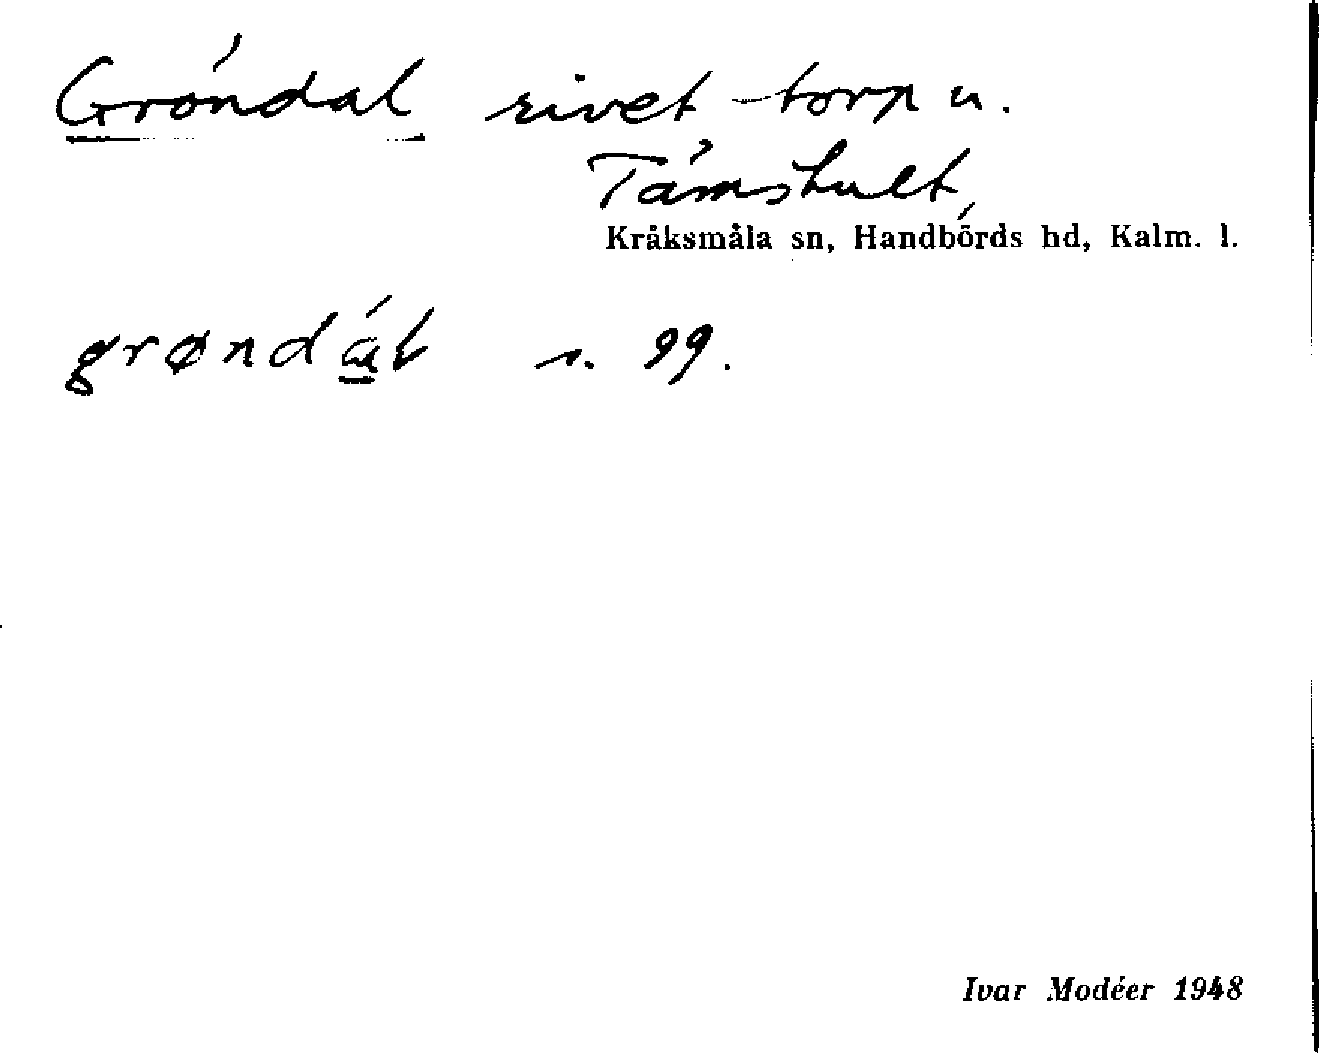 Gröndal rivet torp u.
Tämshult,
Kråksmåla sn, Handbörds hd, Kalm. l.
grøndál s. 99.
Ivar Modéer 1948